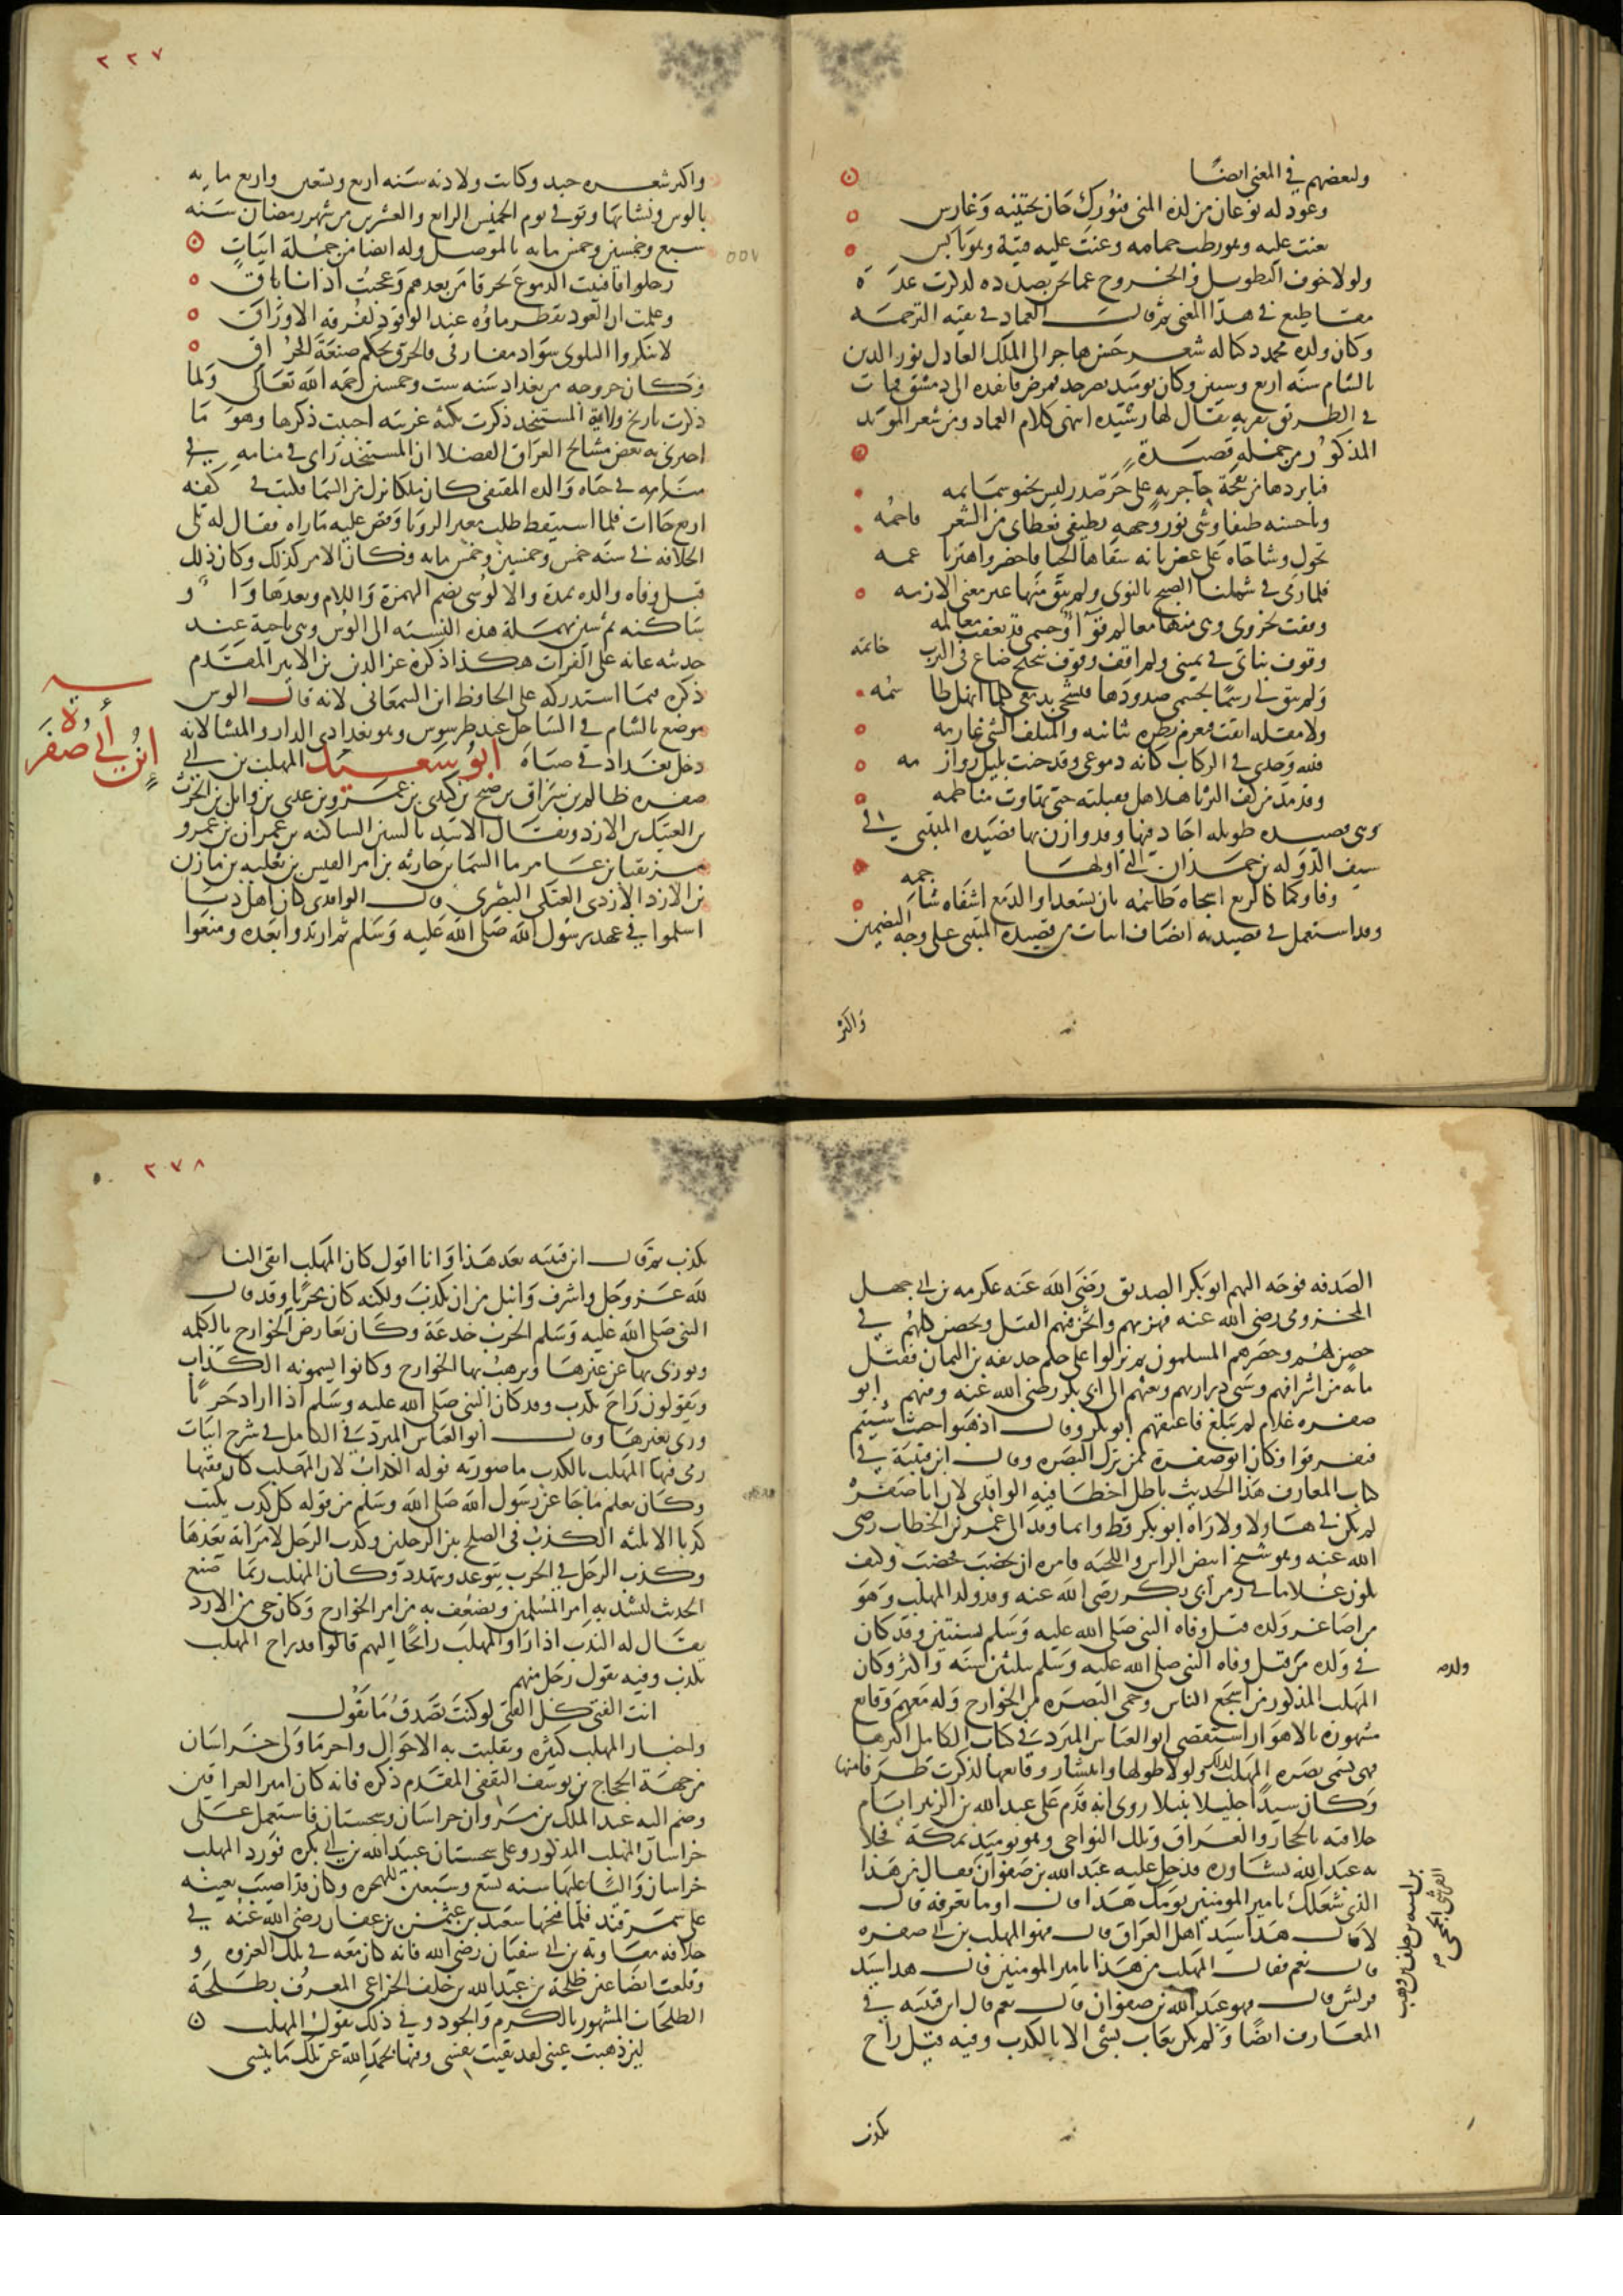 ولبعضهم في المعنى ايضًا
وعود له نوعان من لذة المنى فبورك جان يجتنيه وغارس
تغنت عليه وهو رطب حمامه وغنت عليه قينة وهو يابس
ولولا خوف التطويل والخروج عما نحن بصدده لذكرت عدة
مقاطيع في هذا المعنى ثم قال العماد في بقيه الترجمه
وكان ولده محمد ذكيا له شعر حسن هاجر الى الملك العادل نور الدين
بالشام سنه اربع وستين وكان يوميد بصرخد فمرض فانفده الى دمشق فمات
في الطريق بقريه يقال لها رشيده انتهى كلام العماد ومن شعر المويد
المذكور من جمله قصيدة
فيا بردها من نفحة حاجريه على حر صدر ليس تخبو سمايمه
ويا حسنه طيفا وشى نور وجهه بطيفي فغطاى من الشعر فاحمه
تجول وشاحاه على غصن بانه سقاها الحيا فاخضر واهتز ناعمه
فلما دى في شملنا الصبح بالنوى ولم يبق منها غير معنى الازمه
وقفت بحزوى وهي منها معالم قوآ وجسمى قد تعفت معالمه
وقوف بنانى في يمينى ولم اقف وقوف شحيح ضاع في الترب خاتمه
ولم يبق لى رسمًا بجسمى صدودها فيشجى بدمعى كلما انهل ساجمه
ولا مقلة ابقت فتغرم نظره ثانيه والمتلف الشي غارمه
فلله وجدى في الركاب كانه دموعى وقد حنت بليل روازمه
وقد مد من كف الثريا هلالها فقبلته حتى تهاوت مناظمه
وهي قصيده طويله اجاد فيها وقد وازن بها قصيده المتنبي في
سيف الدوله بن حمدان التي اولها
وفاوكما كالربع اشجاه طاسمه بان تسعدا والدمع اشفاه ساجمه
وقد استعمل في قصيدته انصاف ابيات من قصيدة المتنبي على وجه التضمين
واكثر
٢٢٧
واكثر شعره جيد وكانت ولادته سنه اربع وتسعين واربع مايه
بالوس ونشا بها وتوفي يوم الخميس الرابع والعشرين من شهر رمضان سنه
سبع وخمسين وخمس مايه بالموصل وله ايضا من جملة ابيات
٥٥٧
رحلوا فافنيت الدموع تحرقا من بعدهم وعجبت اذ انا باق
وعلمت ان العود يقطر ماوه عند الوقود لفرقه الاوراق
لا تنكروا البلوى سواد مفارقى فالحرق يحكم صنعة الحراق
وكان خروجه من بغداد سنه ست وخمسين رحمه الله تعالى ولما
ذكرت تاريخ ولاية المستنجد ذكرت نكته غريبه احببت ذكرها وهو ما
اخبرنى به بعض مشايخ العراق الفضلا ان المستنجد راى في منامه في
حياه والده المقتفى كان ملكا نزل من السما فكتب في كفه
اربع خاات فلما استيقظ طلب معبر الرويا وقص عليه ما راه فقال له تلى
الخلافه في سنه خمس وخمسين وخمس مايه فكان الامر كذلك وكان ذلك
قبل وفاه والده بمدة والالوسى بضم الهمزة واللام وبعدها واو
ساكنه ثم سين مهملة هذه النسبه الى الوس وهى ناحية عند
حديثه عانه على الفرات هكذا ذكره عز الدين بن الاثير المقدم
ذكره فيما استدركه على الحافظ ابن السمعانى لانه قال الوس
موضع بالشام في الساحل عند طرسوس وهو بغدادى الدار والمنشا لانه
دخل بغداد في صباه ابو سعيد المهلب بن ابي
ابن ابي صفرة
صفره ظالم بن سراق بن صبح بن كندى بن عمرو بن عدى بن وايل بن الحرث
بن العتيك بن الازد ويقال الاسد بالسين الساكنه بن عمران بن عمرو
مزيقيا بن عامر ما السما بن حارثه بن امر القيس بن ثعلبه بن مازن
بن الازد الازدى العتكى البصرى قال الواقدى كان اهل دبا
اسلموا في عهد رسول الله صلى الله عليه وسلم ثم ارتدوا بعده ومنعوا
الصدقه فوجه اليهم ابو بكر الصديق رضي الله عنه عكرمه بن ابي جهل
المخزومى رضي الله عنه فهزمهم واثخن فيهم القتل وتحصن فلهم في
حصن لهم وحصرهم المسلمون ثم نزلوا على حكم حديفه بن اليمان فقتل
مايه من اشرافهم وسبى دراريهم وبعثهم الى ابي بكر رضي الله عنه وفيهم ابو
صفره غلام لم يبلغ فاعتقهم ابو بكر وقال اذهبوا حيث شيتم
فتفرقوا وكان ابو صفرة ممن نزل البصره وقال ابن قتيبة في
كتاب المعارف هذا الحديث باطل اخطا فيه الواقدى لان ابا صفره
لم يكن في هاولا ولا راه ابو بكر قط وانما وفد الى عمر بن الخطاب رضى
الله عنه وهو شيخ ابيض الراس واللحيه فامره ان يخضب فخضب وكيف
يكون غلاما في زمن ابي بكر رضي الله عنه وقد ولد المهلب وهو
من اصاغر ولده قبل وفاه النبى صلى الله عليه وسلم بسنتين وقد كان
في ولده من قبل وفاه النبي صلى الله عليه وسلم بثلثين سنه واكثر وكان
ولد
المهلب المذكور من اشجع الناس وحمى البصره من الخوارج وله معهم وقايع
مشهوره بالاهواز استقصى ابو العباس المبرد في كتاب الكامل اكثرها
فهى تسمى بصره المهلب لذلك ولولا طولها وانتشار وقايعها لذكرت طرفا منها
وكان سيدًا جليلا نبيلا روى انه قدم على عبد الله بن الزبير ايام
خلافته بالحجاز والعراق وتلك النواحى وهو يوميذ بمكة فخلا
به عبد الله يشاوره فدخل عليه عبد الله بن صفوان فقال من هذا
بن اميه بن خلف بن وهب
القرشى الجمحى
الذى شغلك يا امير المومنين يومك هذا قال او ما تعرفه قال
لا قال هذا سيد اهل العراق قال فهو المهلب بن ابي صفره
قال نعم فقال المهلب من هذا يا امير المومنين قال هذا سيد
قريش قال فهو عبد الله بن صفوان قال نعم قال ابن قتيبه في
المعارف ايضًا ولم يكن يعاب بشى الا بالكذب وفيه قيل راح
يكذب
٢٧٨
يكذب ثم قال ابن قتيبه بعد هذا وانا اقول كان المهلب اتقى الناس
لله عز وجل واشرف وانبل من ان يكذب ولكنه كان محربًا وقد قال
النبى صلى الله عليه وسلم الحرب خدعة وكان يعارض الخوارج بالكلمه
ويورى بها عن غيرها ويرهب بها الخوارج وكانوا يسمونه الكذاب
ويقولون راح يكذب وقد كان النبي صلى الله عليه وسلم اذا اراد حربًا
ورى بغيرها وقال ابو العباس المبرد في الكامل في شرح ابيات
رمى فيها المهلب بالكذب ما صورته قوله الكذاب لان المهلب كان فقيها
وكان يعلم ما جا عن رسول الله صلى الله وسلم من قوله كل كذب يكتب
كذبا الا ثلثه الكذب في الصلح بين الرجلين وكذب الرجل لامراته بعدها
وكذب الرجل في الحرب يتوعد ويتهدد وكان المهلب ربما صنع
الحديث ليشد به امر المسلمين ويضعف به من امر الخوارج وكان حى من الازد
يقال له الندب اذا راوا المهلب رايحًا اليهم قالوا قد راح المهلب
يكذب وفيه يقول رجل منهم
انت الفتى كل الفتى لو كنت تصدق ما تقول
واخبار المهلب كثيره وتقلبت به الاحوال واخر ما ولى خراسان
من جهة الحجاج بن يوسف الثقفى المقدم ذكره فانه كان امير العراقين
وضم اليه عبد الملك بن مروان خراسان وسجستان فاستعمل على
خراسان المهلب المذكور وعلى سجستان عبيد الله بن ابي بكره فورد المهلب
خراسان واليا عليها سنه تسع وسبعين للهجره وكان قد اصيب بعينه
على سمرقند فلما فتحها سعيد بن عثمن بن عفان رضي الله عنه في
خلافه معاويه بن ابي سفيان رضي الله فانه كان معه في تلك الغزوه و
وقلعت ايضا عين طلحة بن عبد الله بن خلف الخزاعي المعروف بطلحة
الطلحات المشهور بالكرم والجود وفي ذلك يقول المهلب
لين ذهبت عينى لقد بقيت نفسى وفيها بحمد الله عن تلك ما ينسى